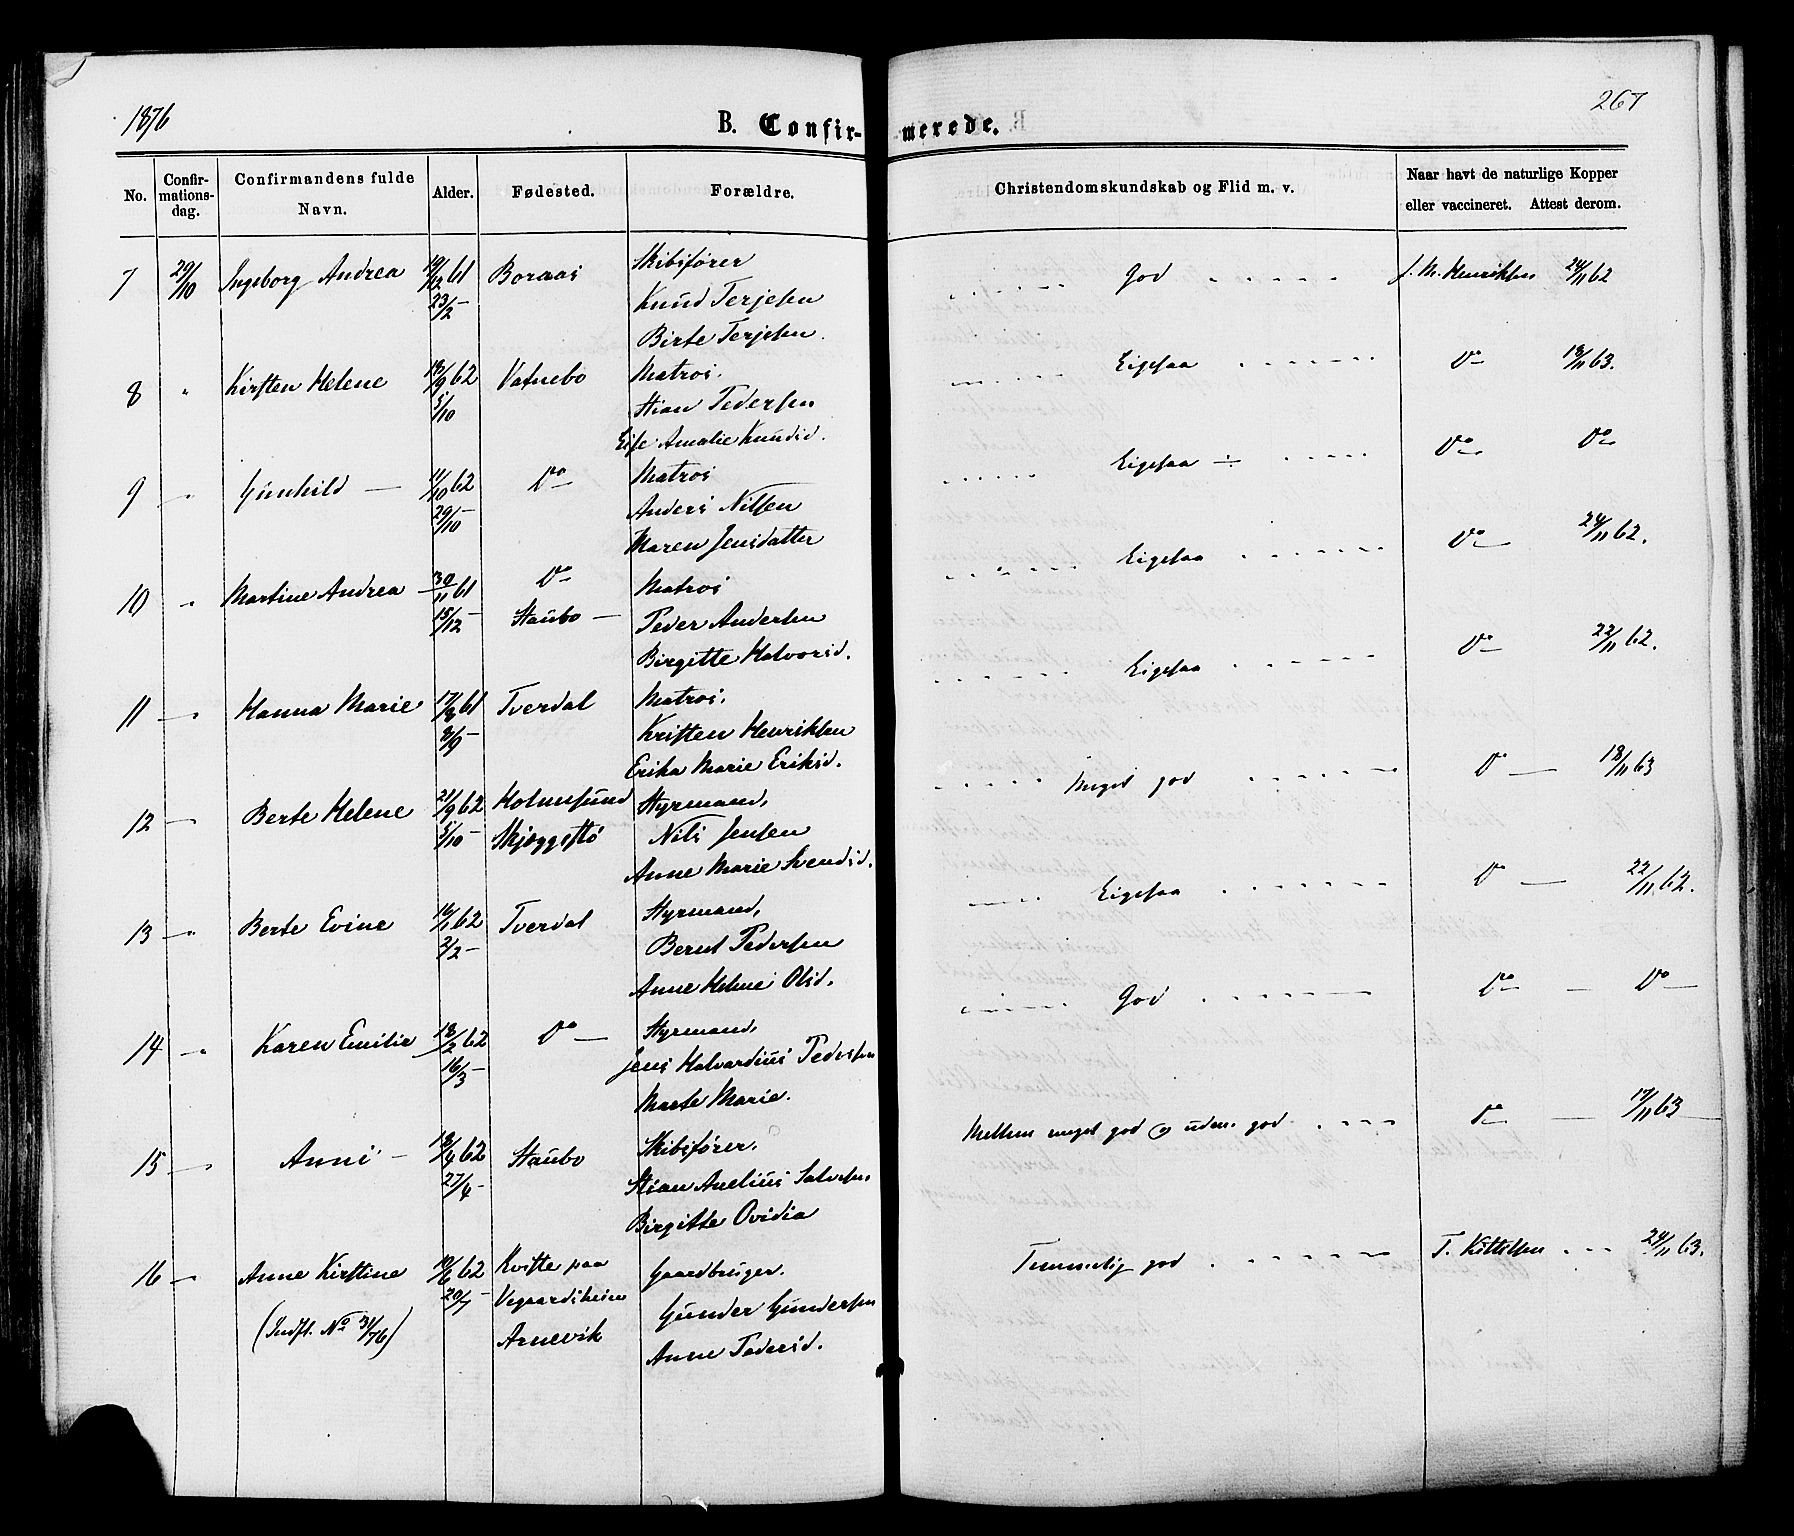 1876
267
B. Confir-merede.
No.
Confir-mations-dag.
Confirmandens fulde Navn.
Alder.
Fødested.
Forældre.
Christendomskundskab og Flid m. v.
Naar havt de naturlige Kopper
eller vaccineret. Attest derom.
7 29/10 Ingeborg Andrea 19/12 61 Boraas Skibsfører God J. M. Henriksen 24/11 62
23/2 – Knud Terjesen
Birte Terjesen.
8 " Kirsten Helene 18/9 62 Vatnebo Matros. Eigesaa Do 18/11 63.
5/10 Stian Pedersen
Else Amalie Knudsd.
9 " Gunhild — 11/10 62 Do — Matros Eigesaa ÷ Do Do
29/10 – Anders Nilsen
Maren Jensdatter
10 " Martine Andrea 30/11 61 Do Matros Eigesaa Do 24/11 62.
15/12 – Staubo — Peder Andersen
Birgitte Halvorsd.
11 " Hanna Marie 17/8 61 Tverdal Matros. Eigesaa Do 22/11 62.
8/9 – Kristen Henriksen
Erika Marie Eriksd.
12 " Berte Helene 21/9 62 Holmesund Styrmand, Meget god Do — 18/11 63
5/10 – Skjæggestø Nils Jensen
Anne Marie Svendsd.
13 " Berte Evine 16/1 62 Tverdal Styrmand, Eigesaa Do — 22/11 62.
2/2 – Bernt Pedersen
Anne Helene Olsd.
14 " Karen Emilie 18/2 62 Do — Styrmand, God Do — Do —
16/3 – Jens Halvardius Pedersen
Marte Marie.
15 " Anne – 18/4 62 Staubo Skibsfører. Mellem meget god og uden. god Do — 17/11 63
27/4 – Stian Anelius Salvesen
Birgitte Ovidia
16 " Anne Kirstine 10/6 62 Kviste paa Gaardbruger. Temmelig god T. Kittelsen 24/11 63.
20/7 – Vegaardsheien Gunder Gundersen
(Indfl. No 31/76) Arnevik Anne Pedersd.